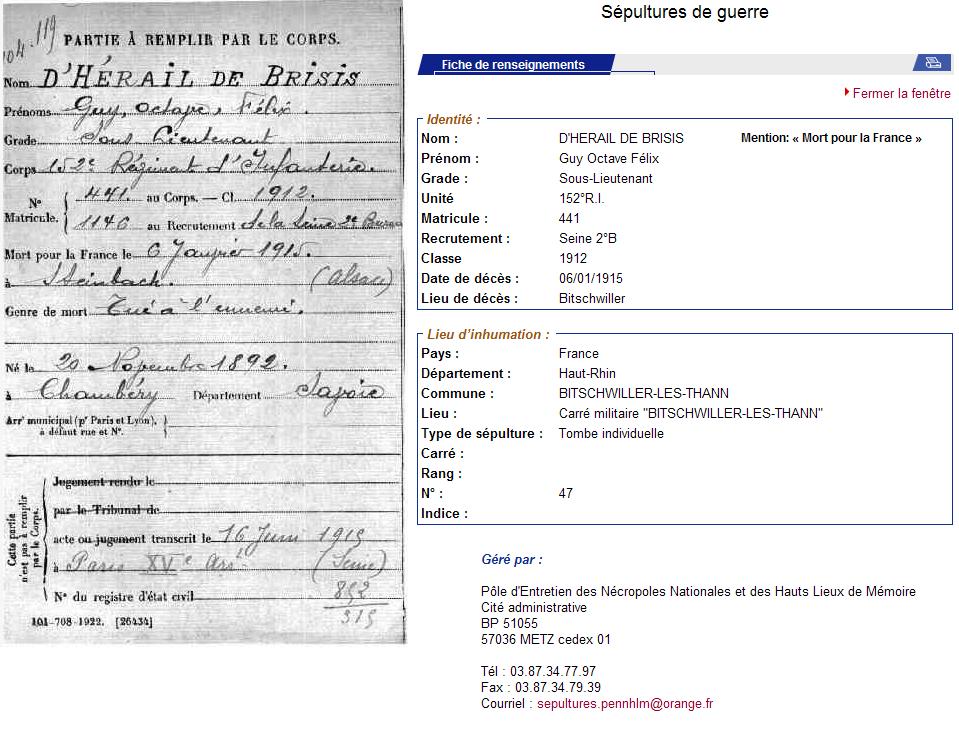 104.119
PARTIE À REMPLIR PAR LE CORPS.
Nom D'HÉRAIL DE BRISIS
Prénoms Guy, Octave, Félix.
Grade Sous Lieutenant
Corps 152e Régiment d'Infanterie.
N°
Matricule.
441. au Corps. — Cl. 1912.
1146 au Recrutement de la Seine 2e Bureau
Mort pour la France le 6 Janvier 1915.
à Steinbach. (Alsace)
Genre de mort Tué à l'ennemi.
Né le 20 Novembre 1892.
à Chambéry Département Savoie
Arrt municipal (pr Paris et Lyon),
à défaut rue et N°.
Cette partie
n'est pas à remplir
par le Corps.
Jugement rendu le
par le Tribunal de
acte ou jugement transcrit le 16 Juin 1915
à Paris XVe Arrt (Seine)
N° du registre d'état civil
515
101-708-1922. [26434]
Sépultures de guerre
Fiche de renseignements
Fermer la fenêtre
Identité :
Nom : D'HERAIL DE BRISIS Mention: « Mort pour la France »
Prénom : Guy Octave Félix
Grade : Sous-Lieutenant
Unité 152°R.I.
Matricule : 441
Recrutement : Seine 2°B
Classe 1912
Date de décès : 06/01/1915
Lieu de décès : Bitschwiller
Lieu d'inhumation :
Pays : France
Département : Haut-Rhin
Commune : BITSCHWILLER-LES-THANN
Lieu : Carré militaire "BITSCHWILLER-LES-THANN"
Type de sépulture : Tombe individuelle
Carré :
Rang :
N° : 47
Indice :
Géré par :
Pôle d'Entretien des Nécropoles Nationales et des Hauts Lieux de Mémoire
Cité administrative
BP 51055
57036 METZ cedex 01
Tél : 03.87.34.77.97
Fax : 03.87.34.79.39
Courriel : sepultures.pennhlm@orange.fr